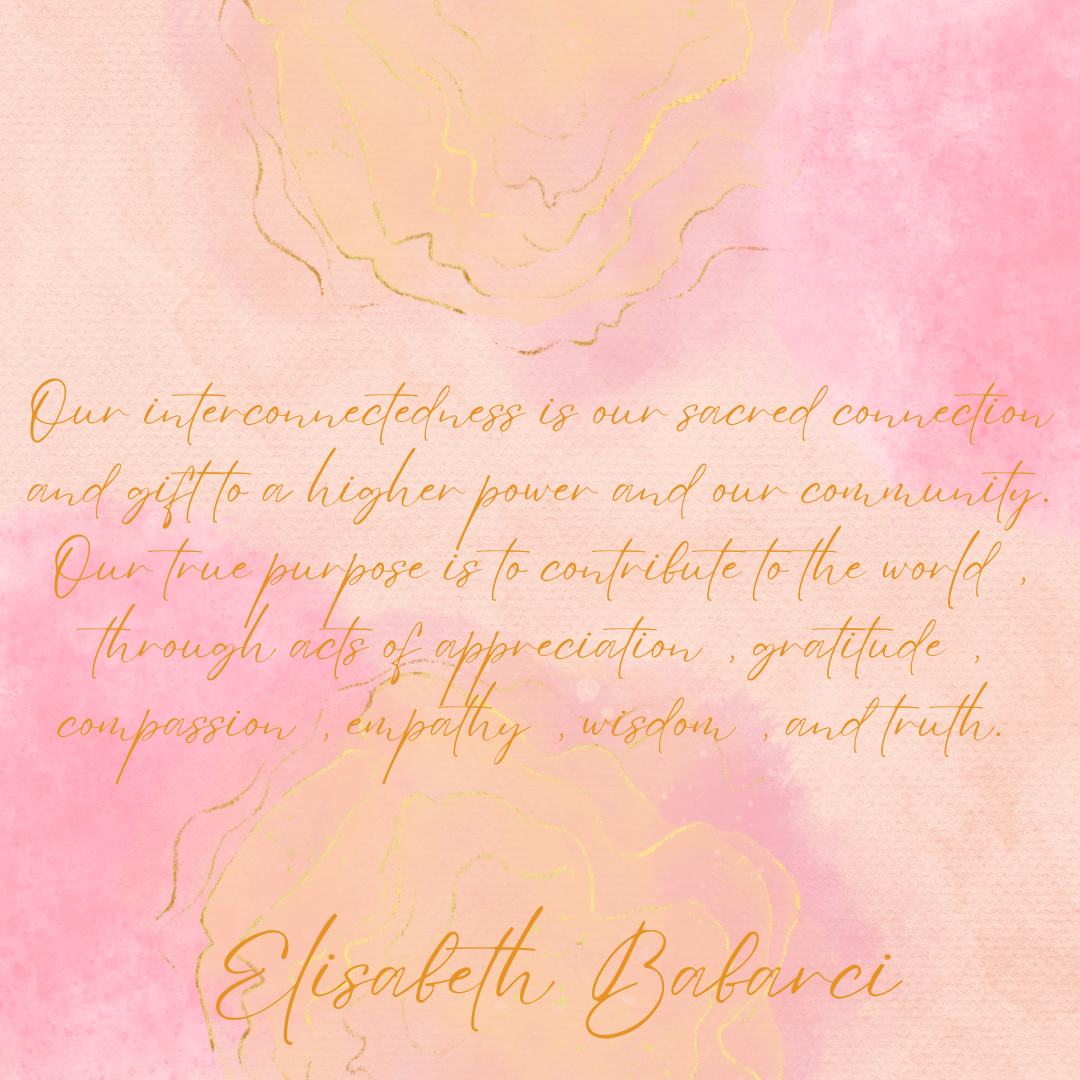 Our interconnectedness is our sacred connection
and gift to a higher power and our community.
Our true purpose is to contribute to the world ,
through acts of appreciation , gratitude ,
compassion , empathy , wisdom , and truth.
Elisabeth Babarci